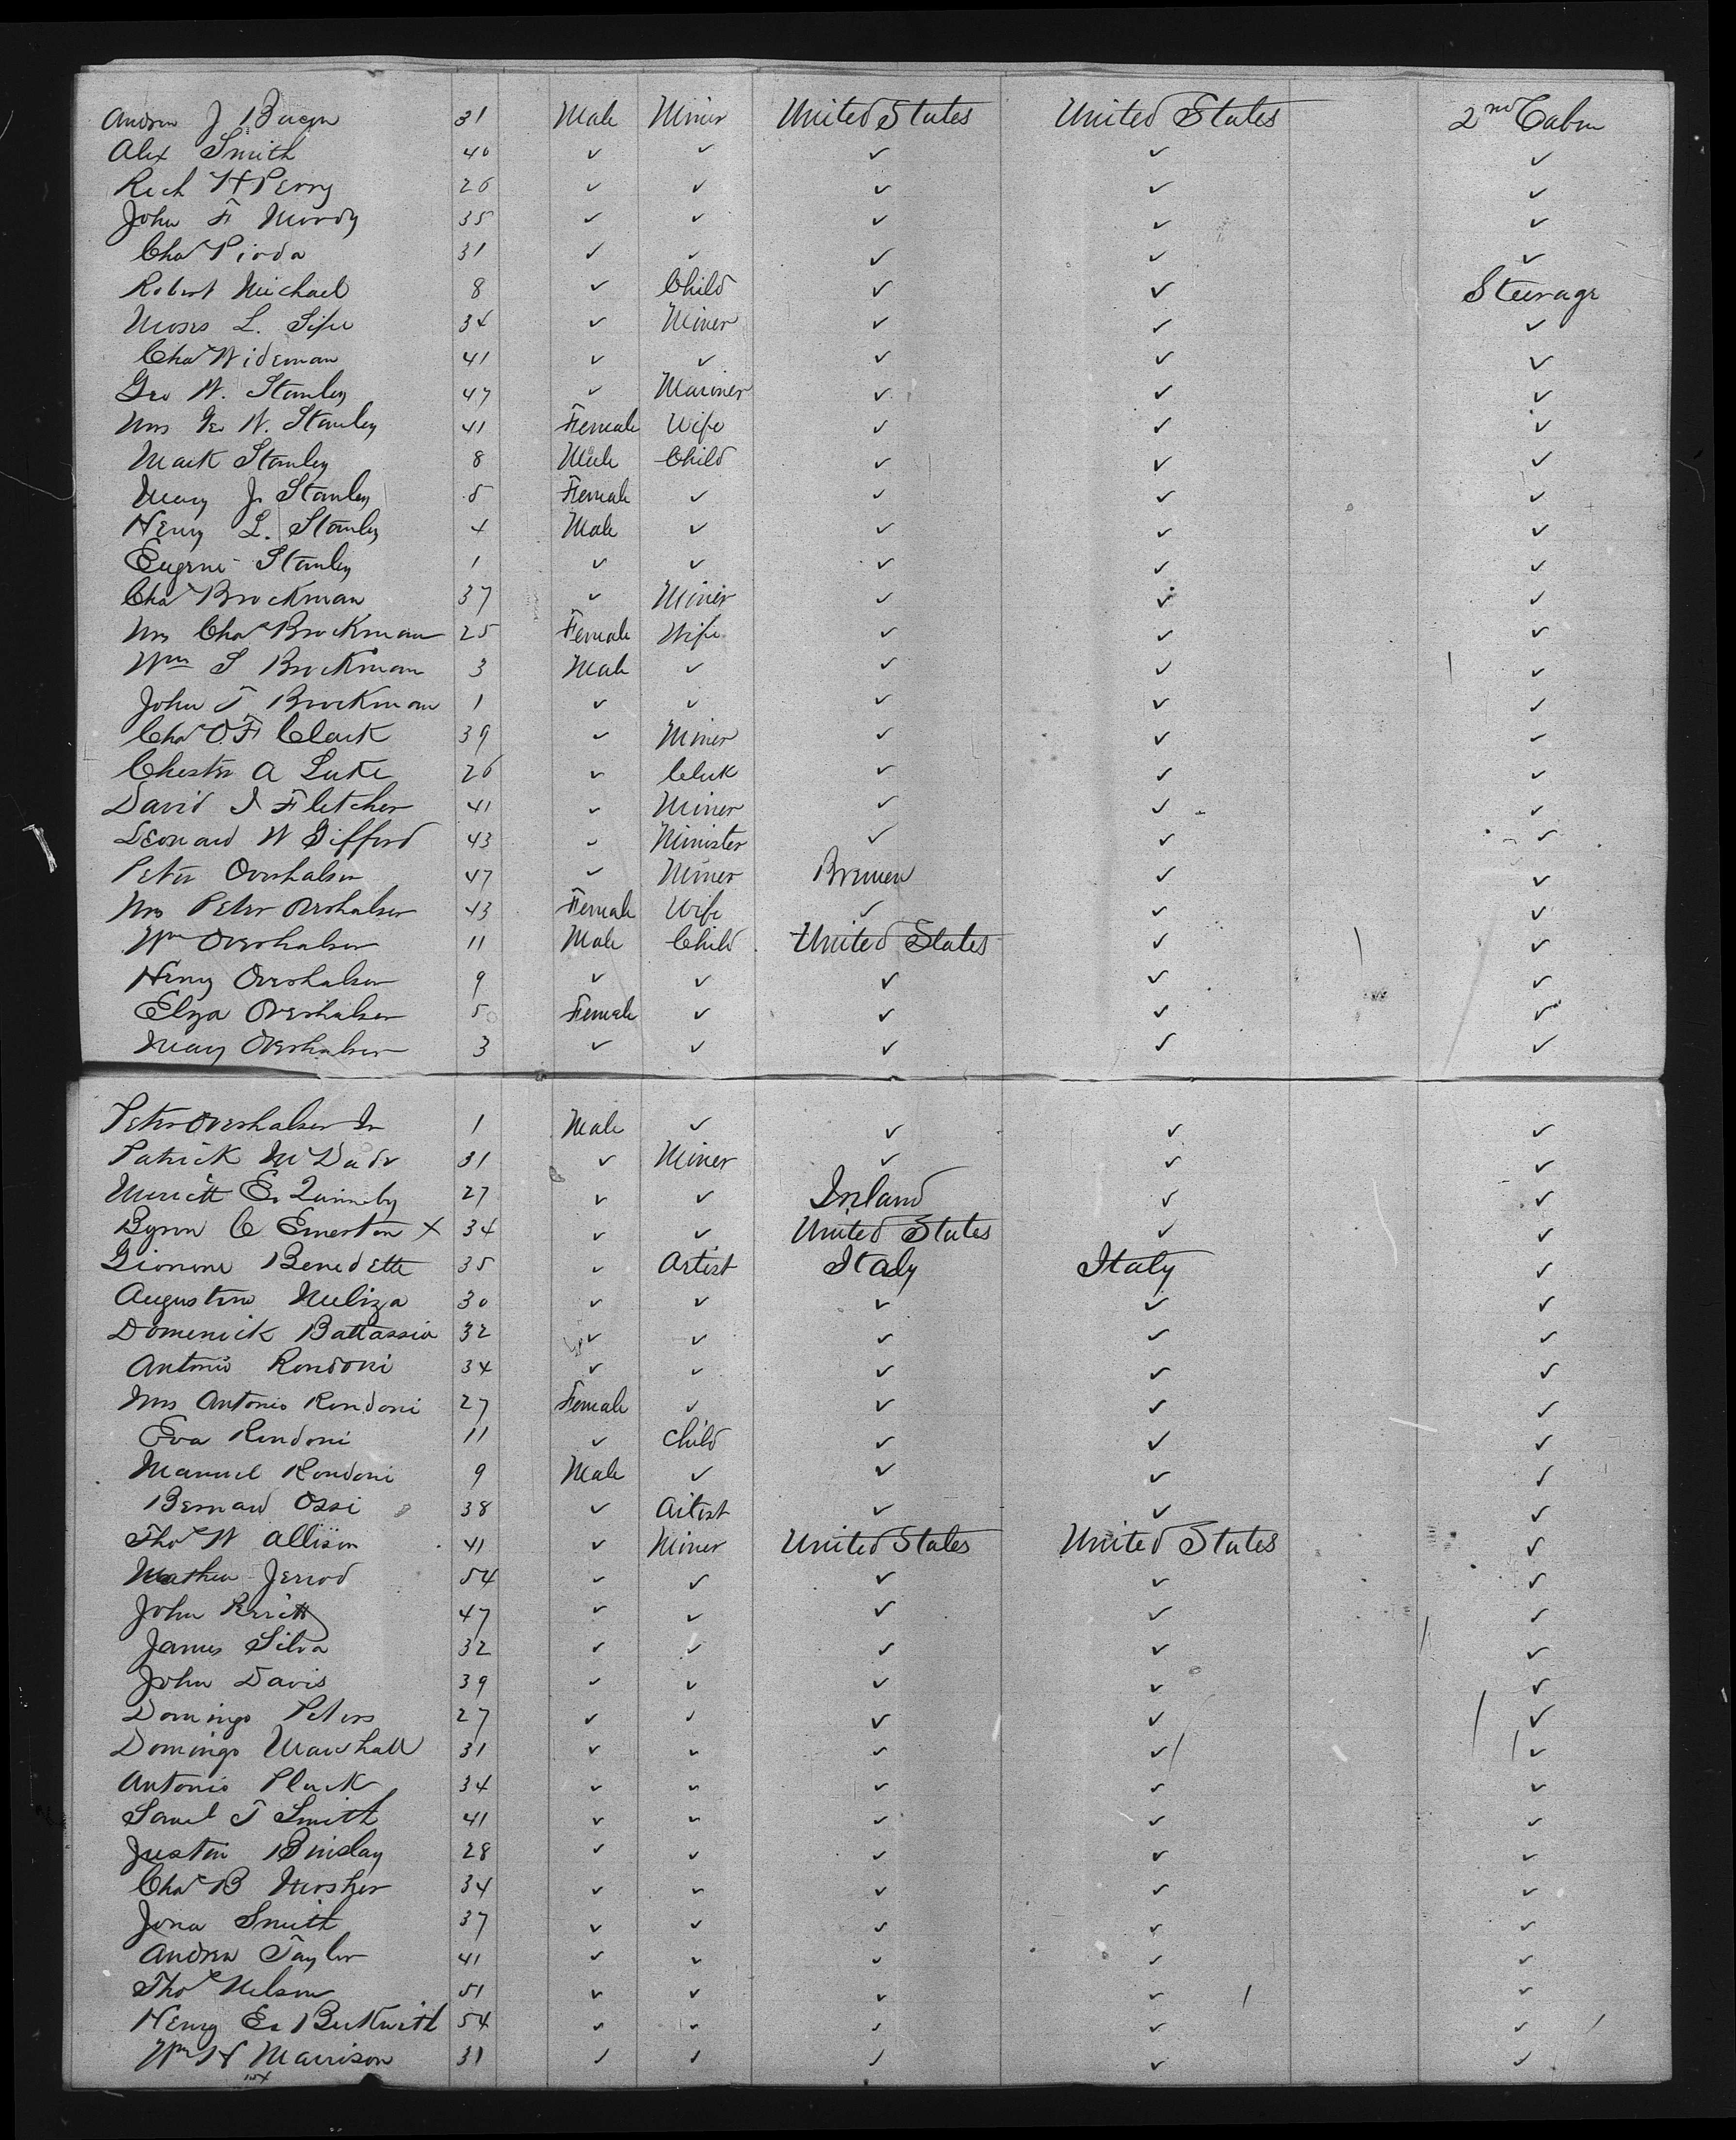 Andrew J Bacon 31 Male Miner United States United States 2nd Cabin
Alex Smith 40 ✓ ✓ ✓ ✓ ✓
Rich H Perry 26 ✓ ✓ ✓ ✓ ✓
John F Moody 35 ✓ ✓ ✓ ✓ ✓
Chas Pioda 31 ✓ ✓ ✓ ✓ ✓
Robert Michael 8 ✓ Child ✓ ✓ Steerage
Moses L. Sife 34 ✓ Miner ✓ ✓ ✓
Chas Wideman 41 ✓ ✓ ✓ ✓ ✓
Geo W. Stanley 47 ✓ Mariner ✓ ✓ ✓
Mrs Geo W. Stanley 41 Female Wife ✓ ✓ ✓
Mark Stanley 8 Male Child ✓ ✓ ✓
Mary J. Stanley 5 Female ✓ ✓ ✓ ✓
Henry L. Stanley 4 Male ✓ ✓ ✓ ✓
Eugene Stanley 1 ✓ ✓ ✓ ✓ ✓
Chas Brockman 37 ✓ Miner ✓ ✓ ✓
Mrs Chas Brockman 25 Female Wife ✓ ✓ ✓
Wm S Brockman 3 Male ✓ ✓ ✓ ✓
John T Brockman 1 ✓ ✓ ✓ ✓ ✓
Chas O. F. Clark 39 ✓ Miner ✓ ✓ ✓
Chester A Luke 26 ✓ Clerk ✓ ✓ ✓
David I Fletcher 41 ✓ Miner ✓ ✓ ✓
Leonard W Gifford 43 ✓ Minister ✓ ✓ ✓
Peter Overhalser 47 ✓ Miner Bremen ✓ ✓
Mrs Peter Overhalser 43 Female Wife ✓ ✓ ✓
Wm Overhalser 11 Male Child United States ✓ ✓
Henry Overhalser 9 ✓ ✓ ✓ ✓ ✓
Elza Overhalser 5 Female ✓ ✓ ✓ ✓
Mary Overhalser 3 ✓ ✓ ✓ ✓ ✓
Peter Overhalser Jr 1 Male ✓ ✓ ✓ ✓
Patrick McDade 31 ✓ Miner ✓ ✓ ✓
Merritt E. Quimby 27 ✓ ✓ Ireland ✓ ✓
Byron C Emerton x 34 ✓ ✓ United States ✓ ✓
Benedette 35 ✓ Artist Italy Italy ✓
Augustino 30 ✓ ✓ ✓ ✓ ✓
Domenick Battassia 32 ✓ ✓ ✓ ✓ ✓
Antonio Rondoni 34 ✓ ✓ ✓ ✓ ✓
Mrs Antonio Rondoni 27 Female ✓ ✓ ✓ ✓
Eva Rondoni 11 ✓ Child ✓ ✓ ✓
Manuel Rondoni 9 Male ✓ ✓ ✓ ✓
Bernard Ossi 38 ✓ Artist ✓ ✓ ✓
Thos W Allison 41 ✓ Miner United States United States ✓
Mathew Jerrod 54 ✓ ✓ ✓ ✓ ✓
John 47 ✓ ✓ ✓ ✓ ✓
James Silva 32 ✓ ✓ ✓ ✓ ✓
John Davis 39 ✓ ✓ ✓ ✓ ✓
Domingo Peters 27 ✓ ✓ ✓ ✓ ✓
Domingo Marshall 31 ✓ ✓ ✓ ✓ ✓
Antonio Pluck 34 ✓ ✓ ✓ ✓ ✓
Saml T Smith 41 ✓ ✓ ✓ ✓ ✓
Justin Binslay 28 ✓ ✓ ✓ ✓ ✓
Chas B Mosher 34 ✓ ✓ ✓ ✓ ✓
Jona Smith 37 ✓ ✓ ✓ ✓ ✓
Andrew Taylor 41 ✓ ✓ ✓ ✓ ✓
Thos Nelson 51 ✓ ✓ ✓ ✓ ✓
Henry E. Beckwith 54 ✓ ✓ ✓ ✓ ✓
Wm H Marrison 31 ✓ ✓ ✓ ✓ ✓